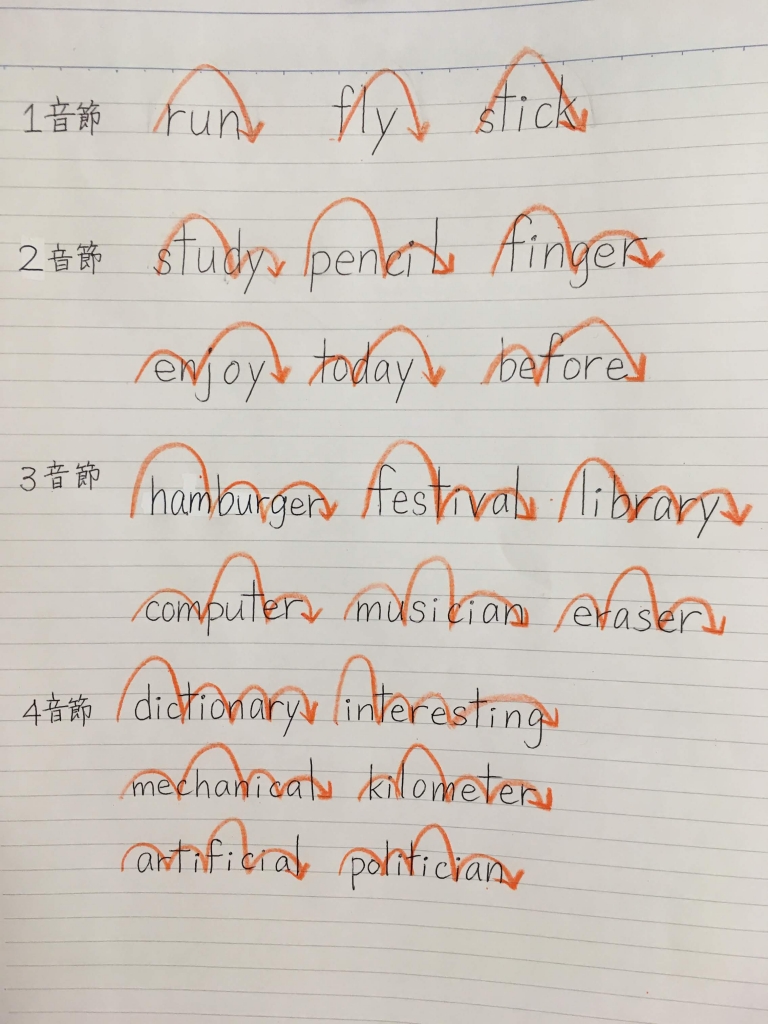 1音節 run fly stick
2音節 study pencil finger
enjoy today before
3音節 hamburger festival library
computer musician eraser
4音節 dictionary interesting
mechanical kilometer
artificial politician